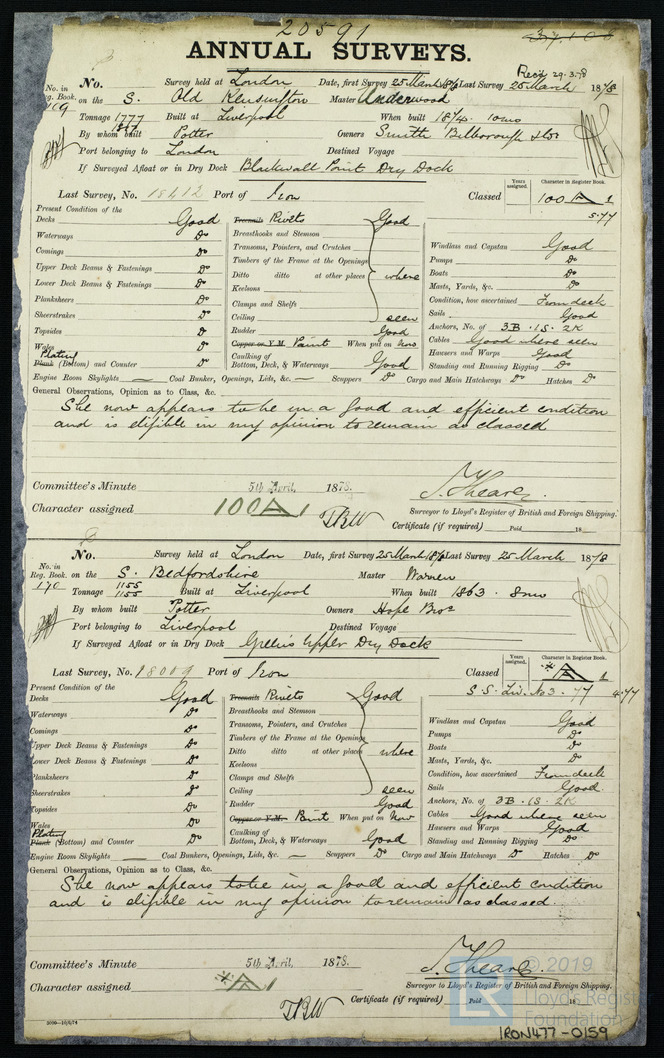 20591
37.106
ANNUAL SURVEYS.
Recd 29.3.78
No. in Reg. Book. 109
No. Survey held at London Date, first Survey 25 March 1878 Last Survey 25 March 1878
on the S. Old Kensington Master Underwood
Tonnage 1777 1817 Built at Liverpool When built 1874. 10mo
By whom built Potter Owners Smith Bilborough & Co
Port belonging to London Destined Voyage
If Surveyed Afloat or in Dry Dock Blackwall Point Dry Dock
Last Survey, No. 18412 Port of Iron Classed Years assigned. Character in Register Book. 100 A 1
5.77
Present Condition of the
Decks Good Treenails Rivets Good
Waterways Do Breasthooks and Stemson
Comings Do Transoms, Pointers, and Crutches Windlass and Capstan Good
Upper Deck Beams & Fastenings Do Timbers of the Frame at the Openings Pumps Do
Lower Deck Beams & Fastenings Do Ditto ditto at other places where Boats Do
Planksheers Do Keelsons Masts, Yards, &c. Do
Sheerstrakes Do Clamps and Shelfs Condition, how ascertained From deck
Topsides Do Ceiling seen Sails Good
Wales Do Rudder Good Anchors, No. of 3B. 1S. 2K
Plating Copper or Y.M. Paint When put on Now Cables Good where seen
Plank (Bottom) and Counter Do Caulking of Bottom, Deck, & Waterways Good Hawsers and Warps Good
Standing and Running Rigging Do
Engine Room Skylights — Coal Bunker, Openings, Lids, &c. — Scuppers Do Cargo and Main Hatcheways Do Hatches Do
General Observations, Opinion as to Class, &c.
She now appears to be in a good and efficient condition
and is eligible in my opinion to remain as classed
Committee's Minute 5th April, 1878.
Character assigned 100 A 1
Surveyor to Lloyd's Register of British and Foreign Shipping.
Certificate (if required) Paid 18
No. in Reg. Book. 170
No. Survey held at London Date, first Survey 25 March 1878 Last Survey 25 March 1878
on the S. Bedfordshire Master Warren
Tonnage 1155 1155 Built at Liverpool When built 1863. 8mo
By whom built Potter Owners Hope Bros
Port belonging to Liverpool Destined Voyage
If Surveyed Afloat or in Dry Dock Upper Dry Dock
Last Survey, No. 18009 Port of Iron Classed Years assigned. Character in Register Book. A 1
S.S. Liv. No 3. 77 4.77
Present Condition of the
Decks Good Treenails Rivets Good
Waterways Do Breasthooks and Stemson
Comings Do Transoms, Pointers, and Crutches Windlass and Capstan Good
Upper Deck Beams & Fastenings Do Timbers of the Frame at the Openings Pumps Do
Lower Deck Beams & Fastenings Do Ditto ditto at other places where Boats Do
Planksheers Do Keelsons Masts, Yards, &c. Do
Sheerstrakes Do Clamps and Shelfs Condition, how ascertained From deck
Topsides Do Ceiling seen Sails Good
Wales Do Rudder Good Anchors, No. of 3B. 1S. 2K
Plating Copper or Y.M. Paint When put on Now Cables Good where seen
Plank (Bottom) and Counter Do Caulking of Bottom, Deck, & Waterways Good Hawsers and Warps Good
Standing and Running Rigging Do
Engine Room Skylights — Coal Bunkers, Openings, Lids, &c. — Scuppers Do Cargo and Main Hatchways Do Hatches Do
General Observations, Opinion as to Class, &c.
She now appears to be in a good and efficient condition
and is eligible in my opinion to remain as classed.
Committee's Minute 5th April, 1878.
Character assigned A 1
Surveyor to Lloyd's Register of British and Foreign Shipping.
Certificate (if required) Paid 18
LR © 2019 Lloyd's Register Foundation
IRON477-0159